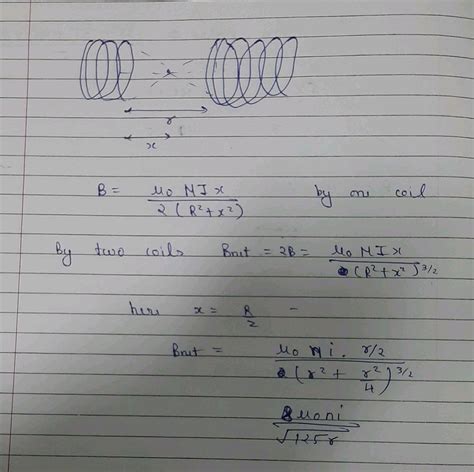 r
x
B = μ₀ N I x / 2 (R² + x²) by one coil
By two coils Bnet = 2B = μ₀ N I x / (R² + x²)^3/2
here x = R/2 -
Bnet = μ₀ N i . r/2 / (r² + r²/4)^3/2
8μ₀ni / √125r